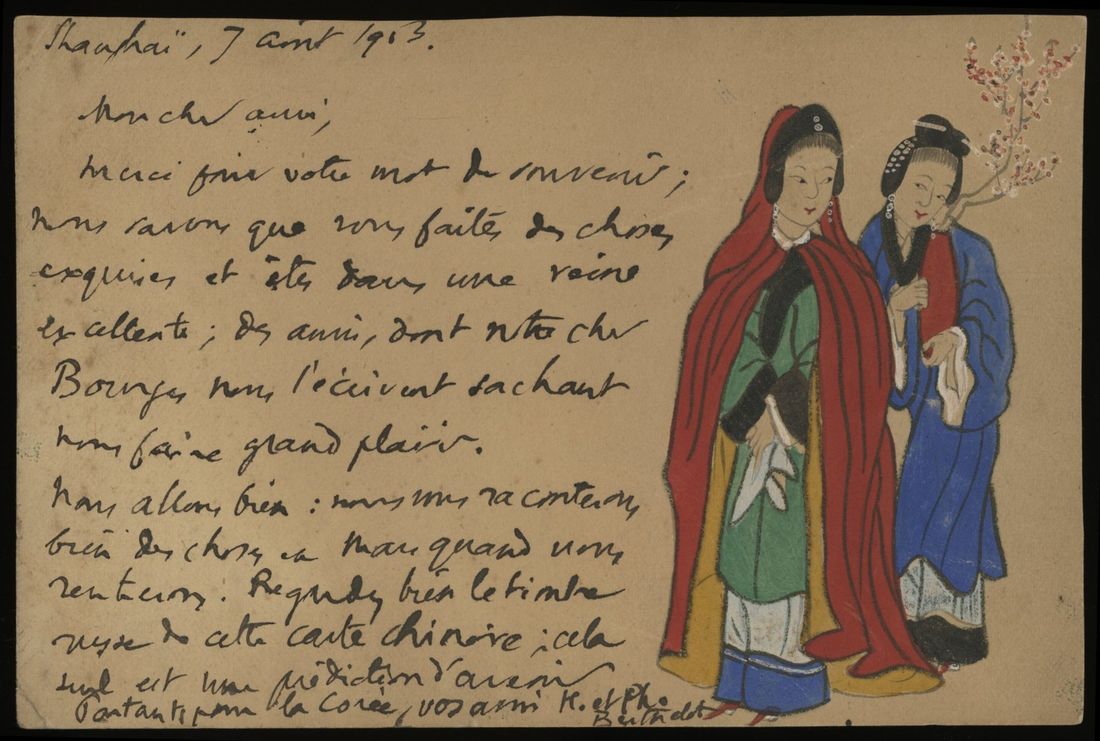 Shanghaï, 7 août 1903.
Mon cher ami,
merci pour votre mot de souvenir ;
nous savons que vous faites des choses
exquises et êtes dans une veine
excellente ; des amis, dont notre cher
Bourges nous l'écrivent sachant
nous faire grand plaisir.
Nous allons bien : nous vous raconterons
bien des choses en mars quand nous
rentrerons. Regardez bien le timbre
russe de cette carte chinoise ; cela
seul est une prédiction d'avenir
Partant pour la Corée, vos amis H. et Ph.
Berthelot